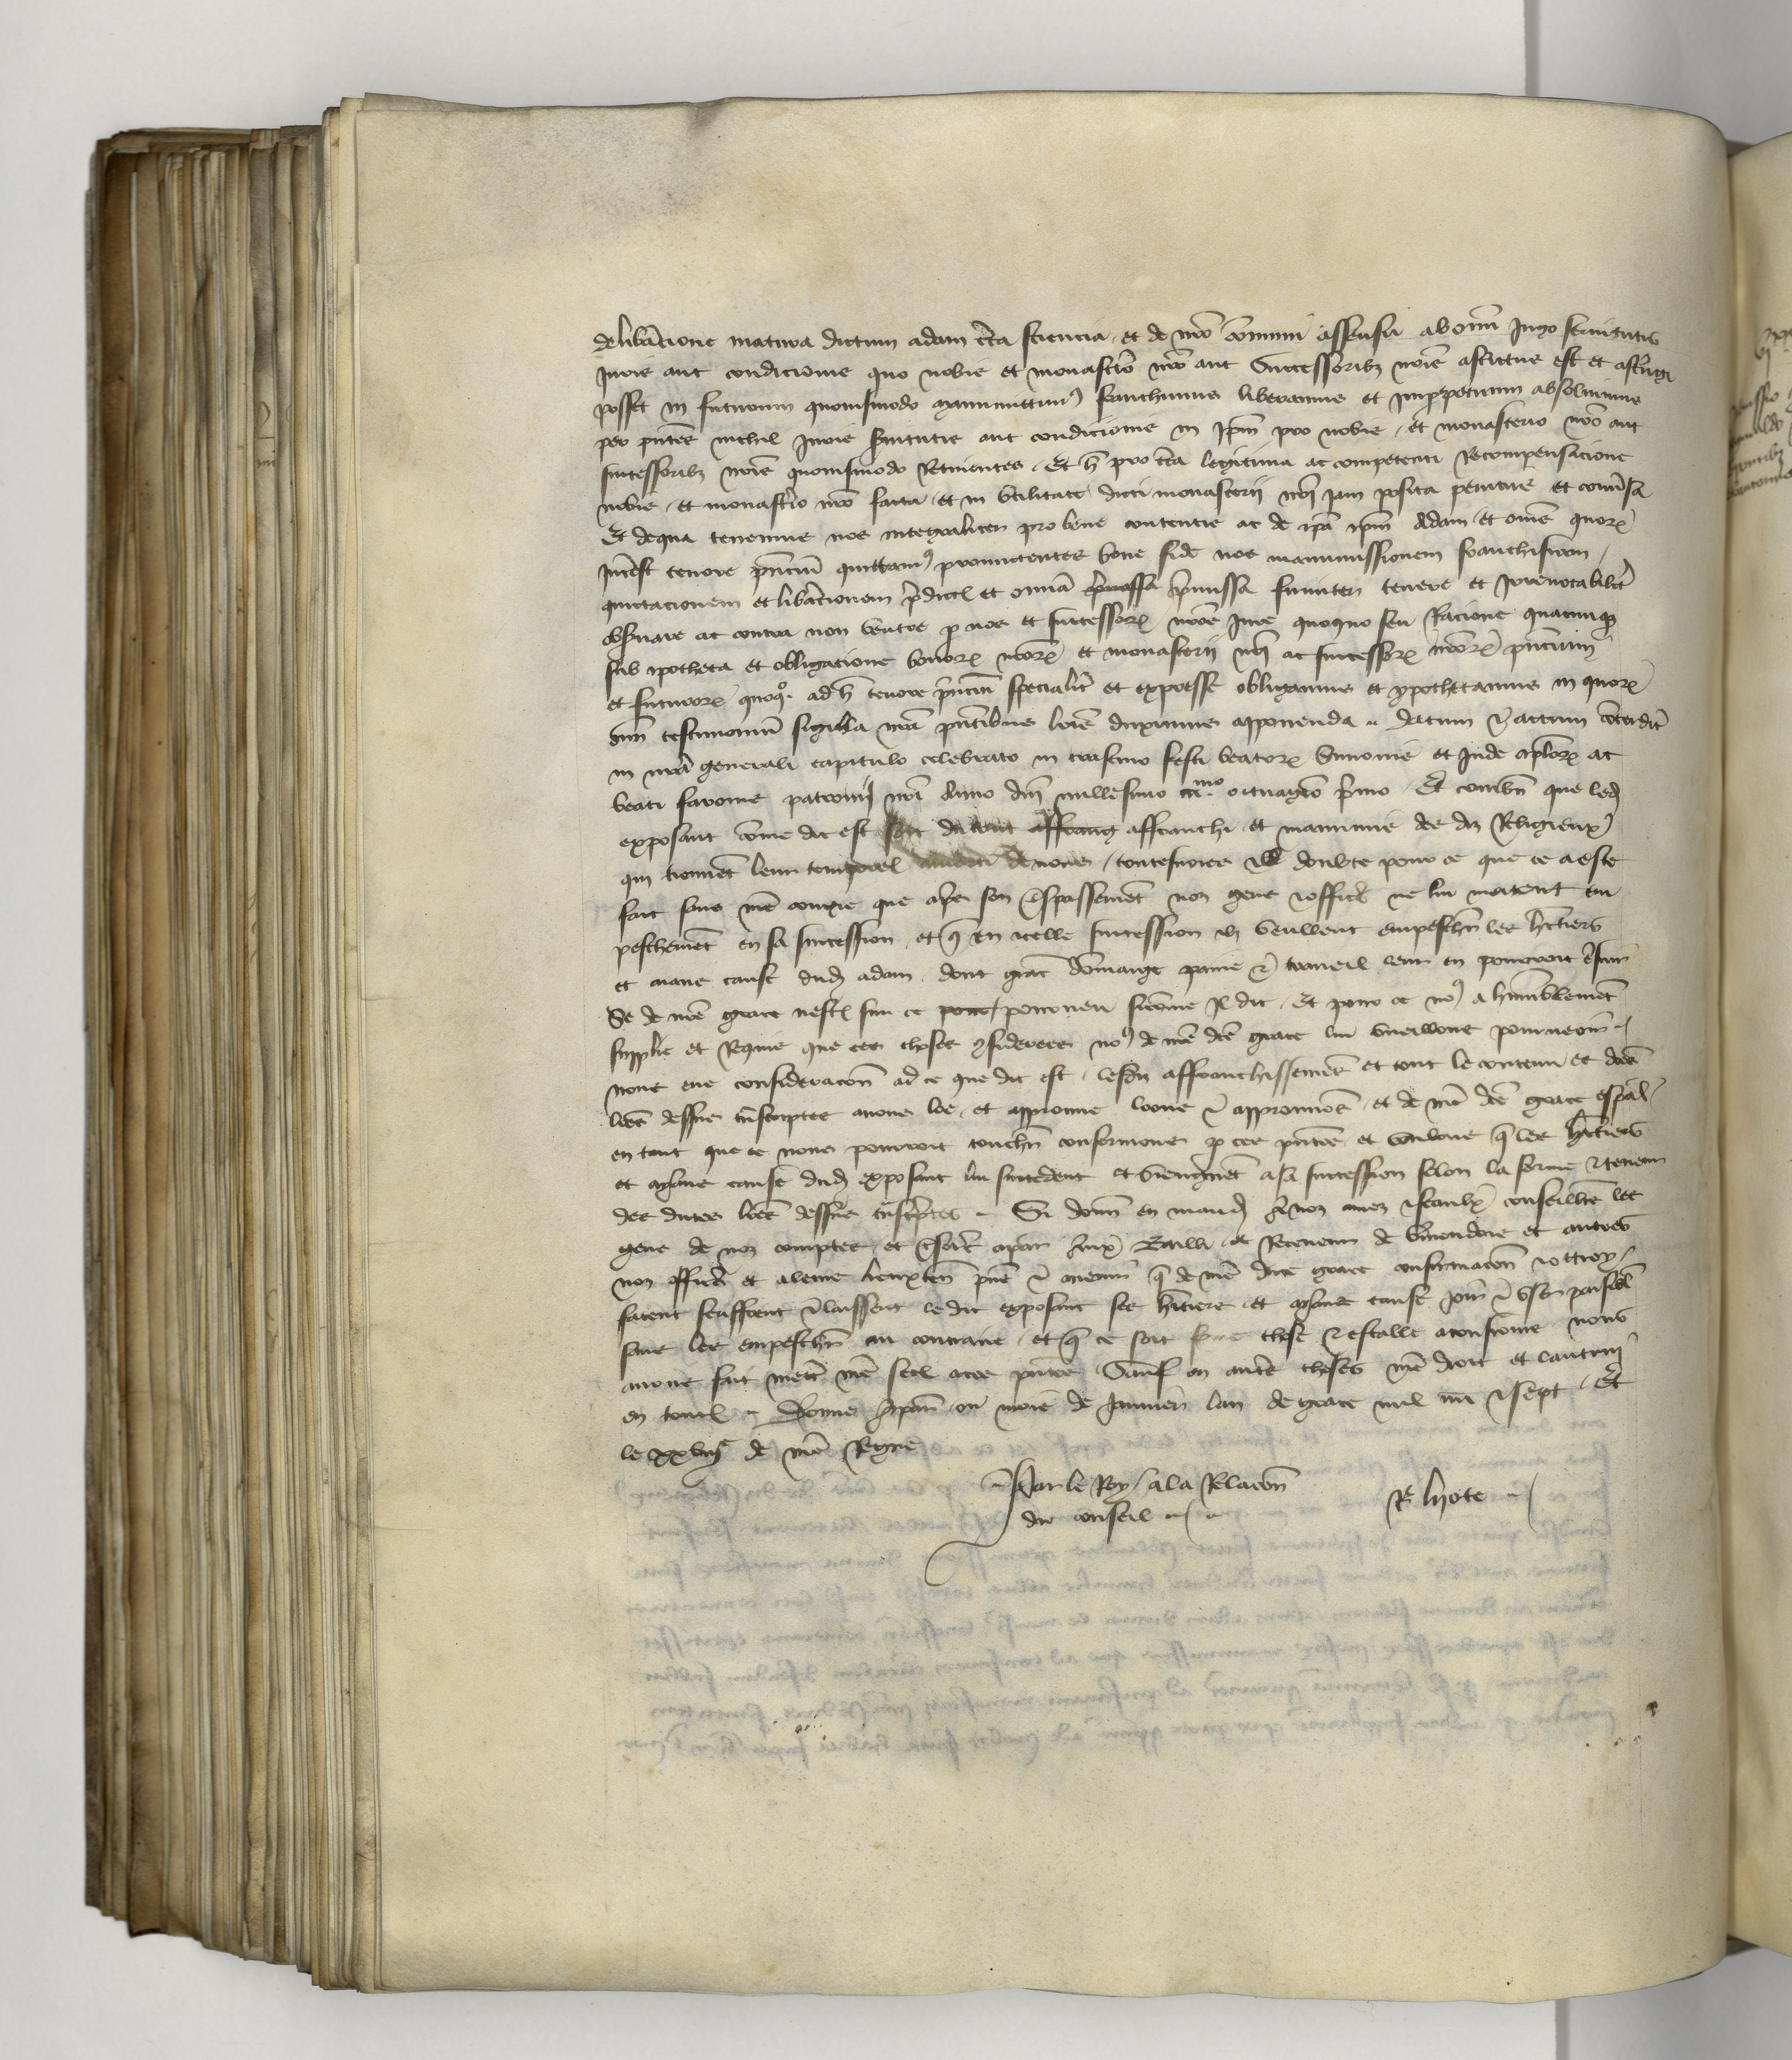 deliberacione matura dictum adam certa sciencia et de nostro communi assensu ab omni jugo servitutis
juris aut condicionis quo nobis et monasterio nostro aut successoribus nostris astrictus est et astringi
posset in futurum quomodo manumittimus franchimus liberamus et imperpetuum absolvimus
per presentes nichil juris servitutis aut condicionis in ipsum pro nobis et monasterio nostro aut
successoribus nostris quomodo retinentes Et hoc pro certa legitima ac competenti recompensacione
nobis et monasterio nostro facta et in utilitate dicti monasterii nostri jam posita penitus et conversa
Et de qua tenemus nos integraliter pro bene contentis ac de ipsa ipsum Adam et omnes quorum
interest tenore presencium quittamus promittentes bone fide nos manumissionem franchisiam
quittacionem et liberacionem predictas et omnia premissa firmiter tenere et irrevocabiliter
observare ac contra non venire per nos et successores nostros jure quoquo seu racione quacumque
sub ypotheca et obligacione bonorum nostrorum et monasterii nostri ac successorum nostrorum presencium
et futurorum quos ad hoc tenore presencium specialiter et expresse obligamus et ypothecamus in quorum
omnium testimonium sigilla nostra presentibus litteris duximus apponenda Datum et actum
in nostro generali capitulo celebrato in crastino festi beatorum Simonis et Jude apostolorum ac
beati faronis patroni nostri Anno domini millesimo ccc mo octuagesimo primo Et combien que ledit
exposant comme dit est affranchi et manumis des diz Religieux
qui tiennent leur temporel de nous toutesvoies il doubte pour ce que ce a este
fait sans nostre congie que apres son trespassement noz gens et officiers ne lui meissent em
peschement en sa succession et que en icelle succession ilz veullent empescher les heritiers
et aians cause dudit adam dont grant dommage peine et travail leur en pourroit ensuir
Se de nostre grace nestoit sur ce pourveu sicomme Il dit Et pour ce nous a humblement
supplie et Requis que ces choses considerees nous de nostre dicte grace lui vueillons pourveoir
nous eue consideracion ad ce que dit est lesdiz affranchissement et tout le contenu es dictes
lettres dessus transcriptes avons loe et approuve loons et approuvons et de nostre dicte grace especial
en tant que ce nous pourroit toucher confermons par ces presentes et voulons que les heritiers
et ayans cause dudit exposant lui succedent et viengnent a sa succession selon la forme et teneur
des dictes lettres dessus transcriptes Si donnons en mandement a noz amez et feaulx conseilliers les
gens de noz comptes et tresoriers a paris aux Bailli et Receveur de Vermendois et autres
noz officiers et a leurs lieuxtenans presens et avenir que de nostre dicte grace confirmacion et ottroy
facent seuffrent et laissent ledit exposant ses heritiers et ayans cause joir et user paisiblement
sans les empescher au contraire et que ce soit ferme chose et estable a tousjours nous
avons fait mettre nostre seel a ces presentes Sauf en autres choses nostre droit et lautrui
en toutes Donne a paris ou mois de Janvier lan de grace mil cccc et sept Et
le xxviije de nostre Regne
Par le Roy a la Relacion
du conseil
R lhote